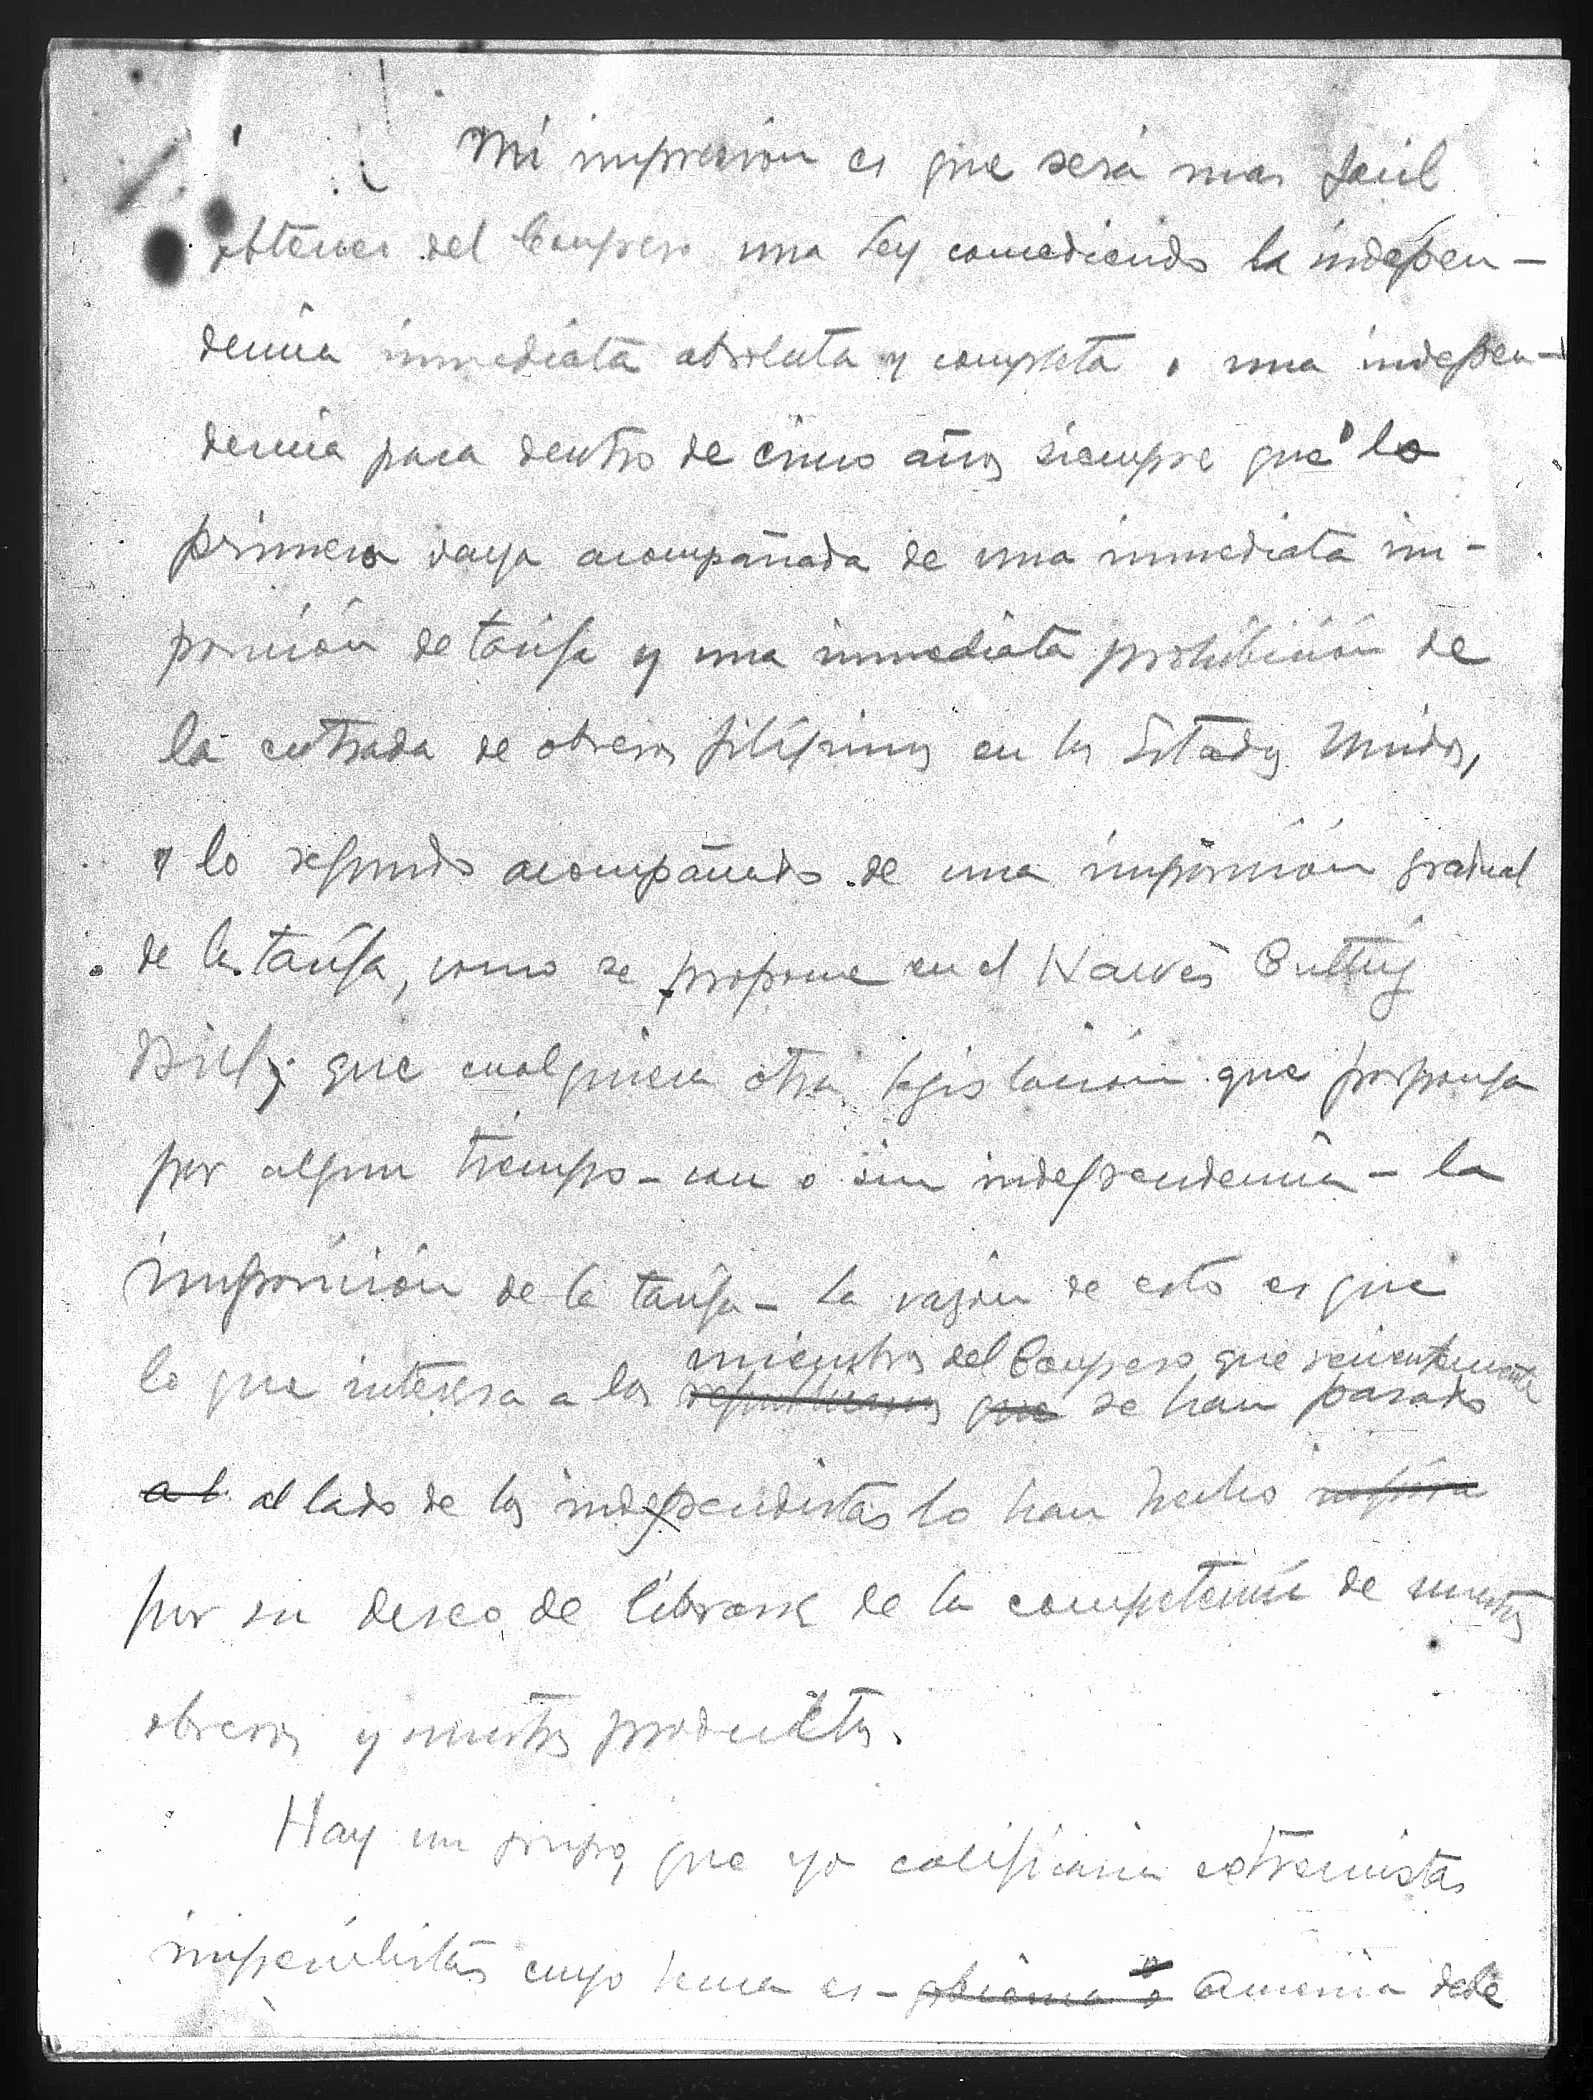 Mi impresión es que será mas facil
obtener del Congreso una ley concediendo la indepen-
dencia inmediata absoluta y completa o una indepen-
dencia para dentro de cinco años siempre que lo
primero vaya acompañada de una inmediata im-
posición de tarifa y una inmediata prohibición de
la entrada de obreros filipinos en los Estados Unidos,
y lo segundo acompañado de una imposición gradual
de la tarifa, como se propone en el Hawes Cutting
Bill, que cualquiera otra legislación que posponga
por algun tiempo - con o sin independencia - la
imposición de la tarifa - La razón de esto es que
miembros del Congreso que recientemente
lo que interesa a los republicanos que se han pasado
al al lado de los independistas lo han hecho
por su deseo de librarse de la competencia de nuestros
obreros y nuestros productos.
Hay un grupo, que yo calificaria extremistas
imperialistas cuyo lema es - America debe